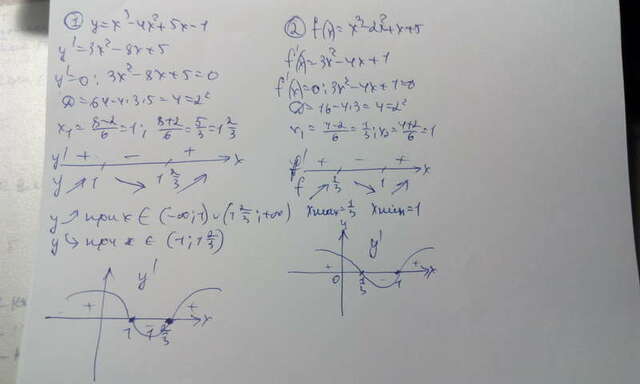 ① y = x³ - 4x² + 5x - 1
y' = 3x² - 8x + 5
y' = 0; 3x² - 8x + 5 = 0
D = 64 - 4·3·5 = 4 = 2²
x₁ = (8-2)/6 = 1; (8+2)/6 = 5/3 = 1 2/3
y' + - + x
y 1 1 2/3
y ↗ при x ∈ (-∞; 1) ∪ (1 2/3; +∞)
y ↘ при x ∈ (1; 1 2/3)
y'
+ - + x
1 1 2/3
② f(x) = x³ - 2x² + x + 5
f'(x) = 3x² - 4x + 1
f'(x) = 0; 3x² - 4x + 1 = 0
D = 16 - 4·3 = 4 = 2²
x₁ = (4-2)/6 = 1/3; x₂ = (4+2)/6 = 1
f' + - + x
f 1/3 1
xmax = 1/3 xmin = 1
y
y'
+ - + x
0 1/3 1